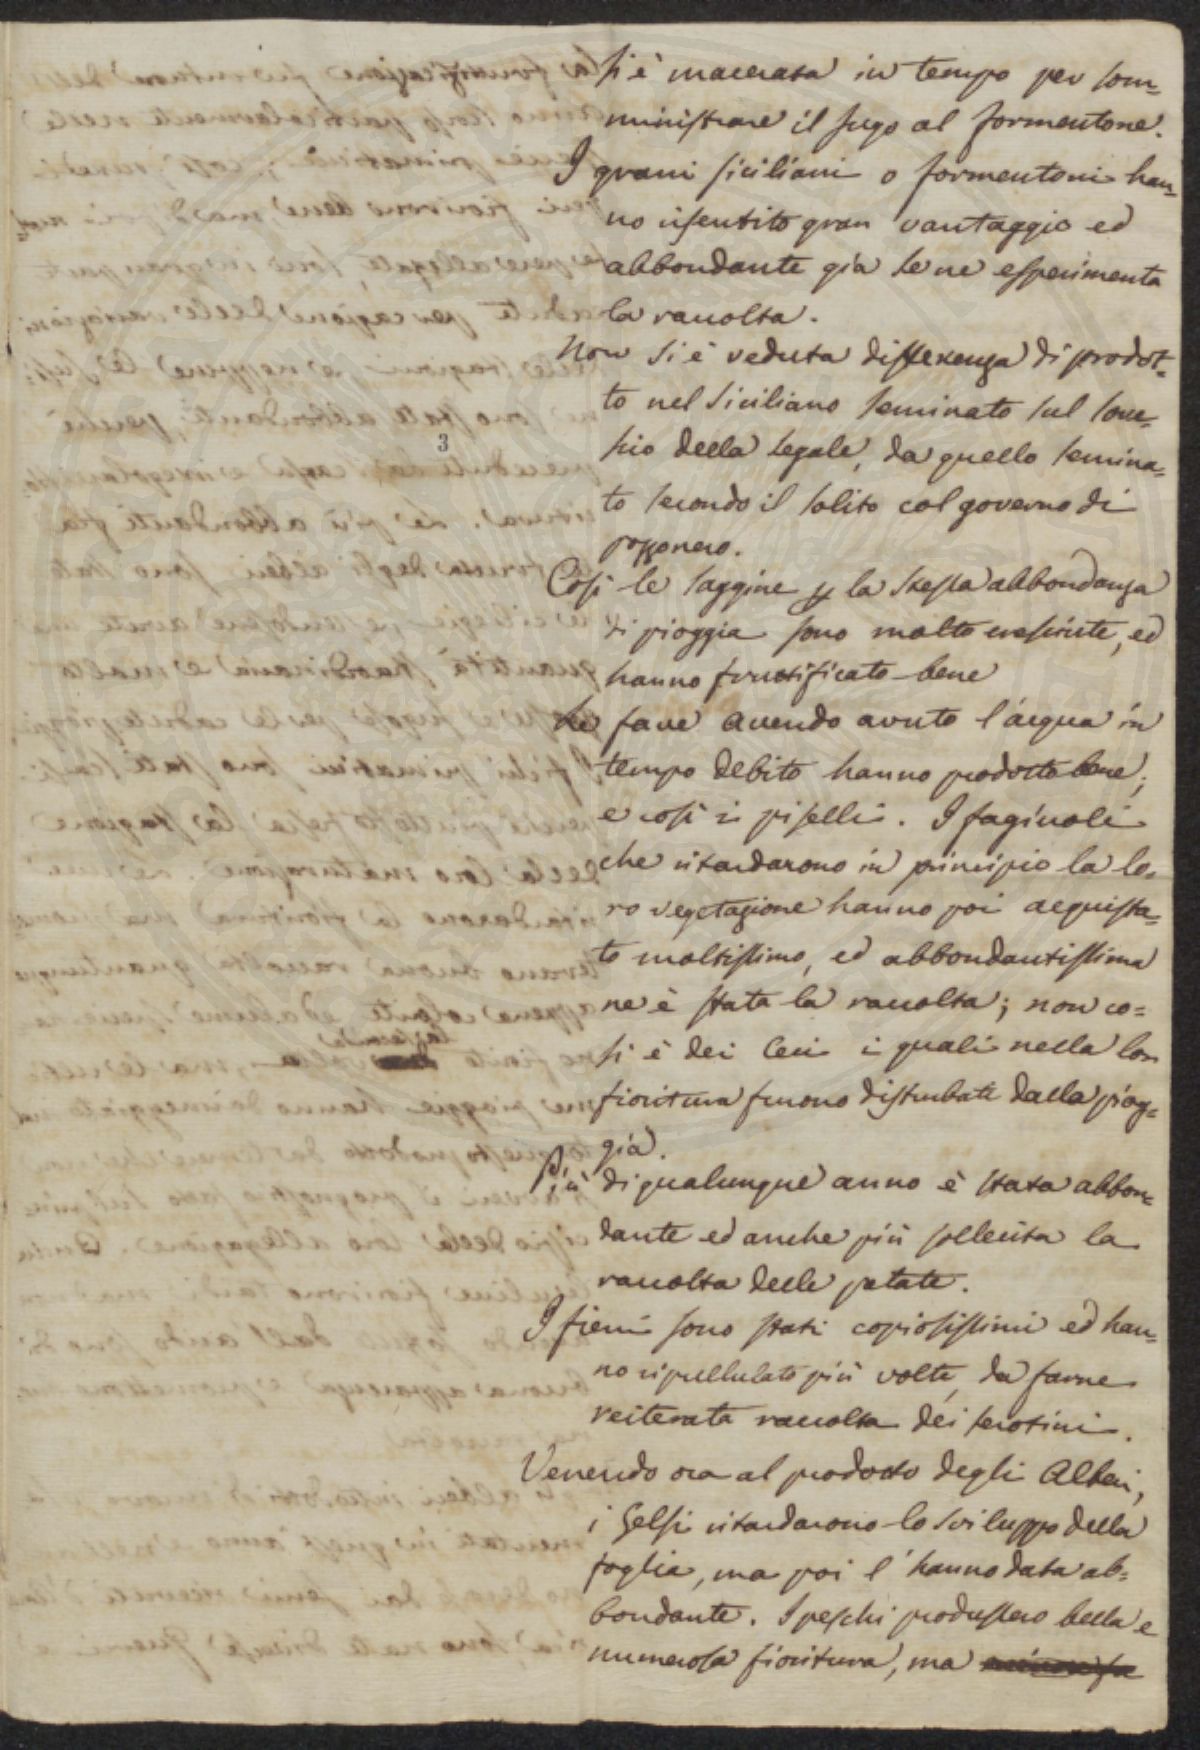 si è macerata in tempo per som=
ministrare il sugo al formentone.
I grani siciliani o formentoni han=
no risentito gran vantaggio ed
abbondante già se ne esperimenta
la raccolta.
Non si è veduta differenza di prodot=
to nel Siciliano seminato sul sove=
scio della segale, da quello semina=
to secondo il solito col governo di
pozzonero.
Così le saggine per la stessa abbondanza
di pioggia sono molto cresciute, ed
hanno fruttificato bene
Le fave avendo avuto l'acqua in
tempo debito hanno prodotto bene;
e così i piselli. I fagiuoli
che ritardarono in principio la lo=
ro vegetazione hanno poi acquista=
to moltissimo, ed abbondantissima
ne è stata la raccolta; non co=
sì è dei Ceci i quali nella lor
fioritura furono disturbati dalla piog=
gia.
Più di qualunque anno è stata abbon=
dante ed anche più sollecita la
raccolta delle patate.
I fieni sono stati copiosissimi ed han=
no ripullulato più volte, da farne
reiterata raccolta dei serotini.
Venendo ora al prodotto degli Alberi,
i Gelsi ritardarono lo sviluppo della
foglia, ma poi l'hanno data ab=
bondante. I peschi produssero bella e
numerosa fioritura, ma
3